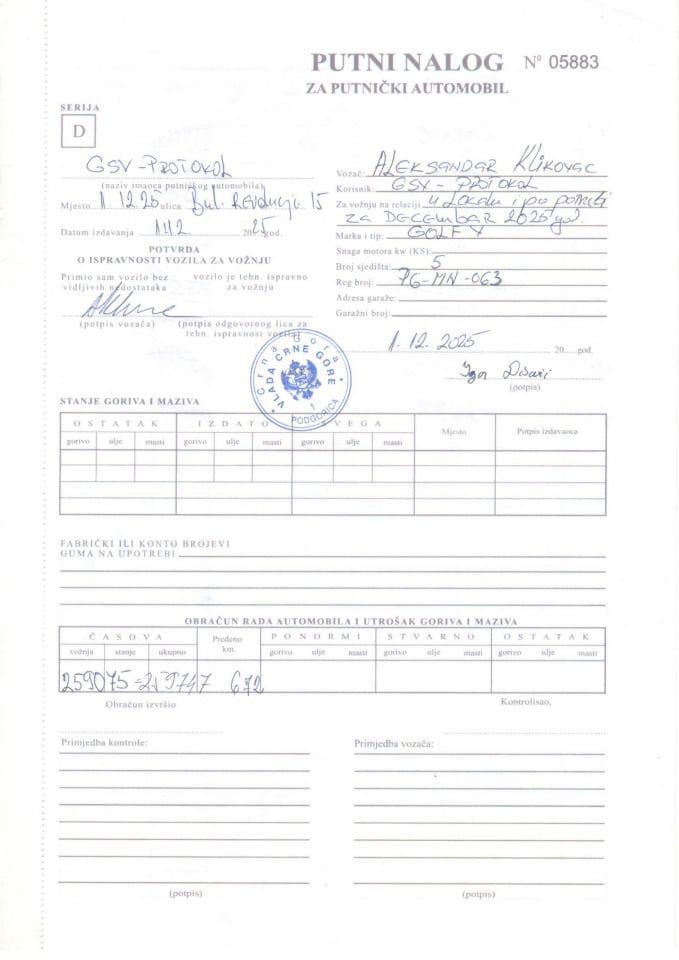 PUTNI NALOG Nº 05883
ZA PUTNIČKI AUTOMOBIL
SERIJA
D
GSV-PROTOKOL
(naziv imaoca putničkog automobila)
Mjesto 1.12.25 ulica Bul. Revolucije 15
Datum izdavanja 1.12. 2025 god.
POTVRDA
O ISPRAVNOSTI VOZILA ZA VOŽNJU
Primio sam vozilo bez vidljivih nedostataka
vozilo je tehn. ispravno za vožnju
(potpis vozača)
(potpis odgovornog lica za tehn. ispravnost vozila)
Vozač: ALEKSANDAR KLIKOVAC
Korisnik: GSV - PROTOKOL
Za vožnju na relaciji u lokalu i po potrebi
za DECEMBAR 2025 god.
Marka i tip: GOLF V
Snaga motora kw (KS):
Broj sjedišta: 5
Reg broj: PG-MN-063
Adresa garaže:
Garažni broj:
1.12.2025 20 god.
Igor
(potpis)
Crna Gora
VLADA CRNE GORE
1
PODGORICA
STANJE GORIVA I MAZIVA
OSTATAK IZDATO SVEGA Mjesto Potpis izdavaoca
gorivo ulje masti gorivo ulje masti gorivo ulje masti
FABRIČKI ILI KONTO BROJEVI
GUMA NA UPOTREBI
OBRAČUN RADA AUTOMOBILA I UTROŠAK GORIVA I MAZIVA
ČASOVA Pređeno km. PO NORMI STVARNO OSTATAK
vožnja stanje ukupno gorivo ulje masti gorivo ulje masti gorivo ulje masti
259075=259747 672
Obračun izvršio
Kontrolisao,
Primjedba kontrole:
Primjedba vozača:
(potpis)
(potpis)